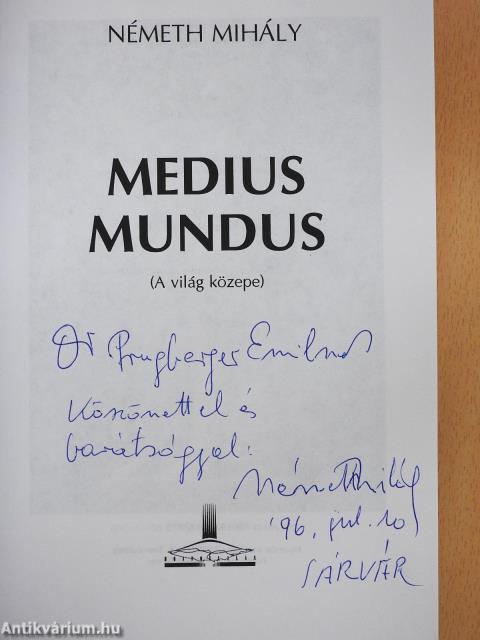 NÉMETH MIHÁLY
MEDIUS
MUNDUS
(A világ közepe)
Dr Prugberger Emilnek
Köszönettel és
barátsággal:
Németh Mihály
'96. júl. 10
SÁRVÁR
Antikvárium.hu